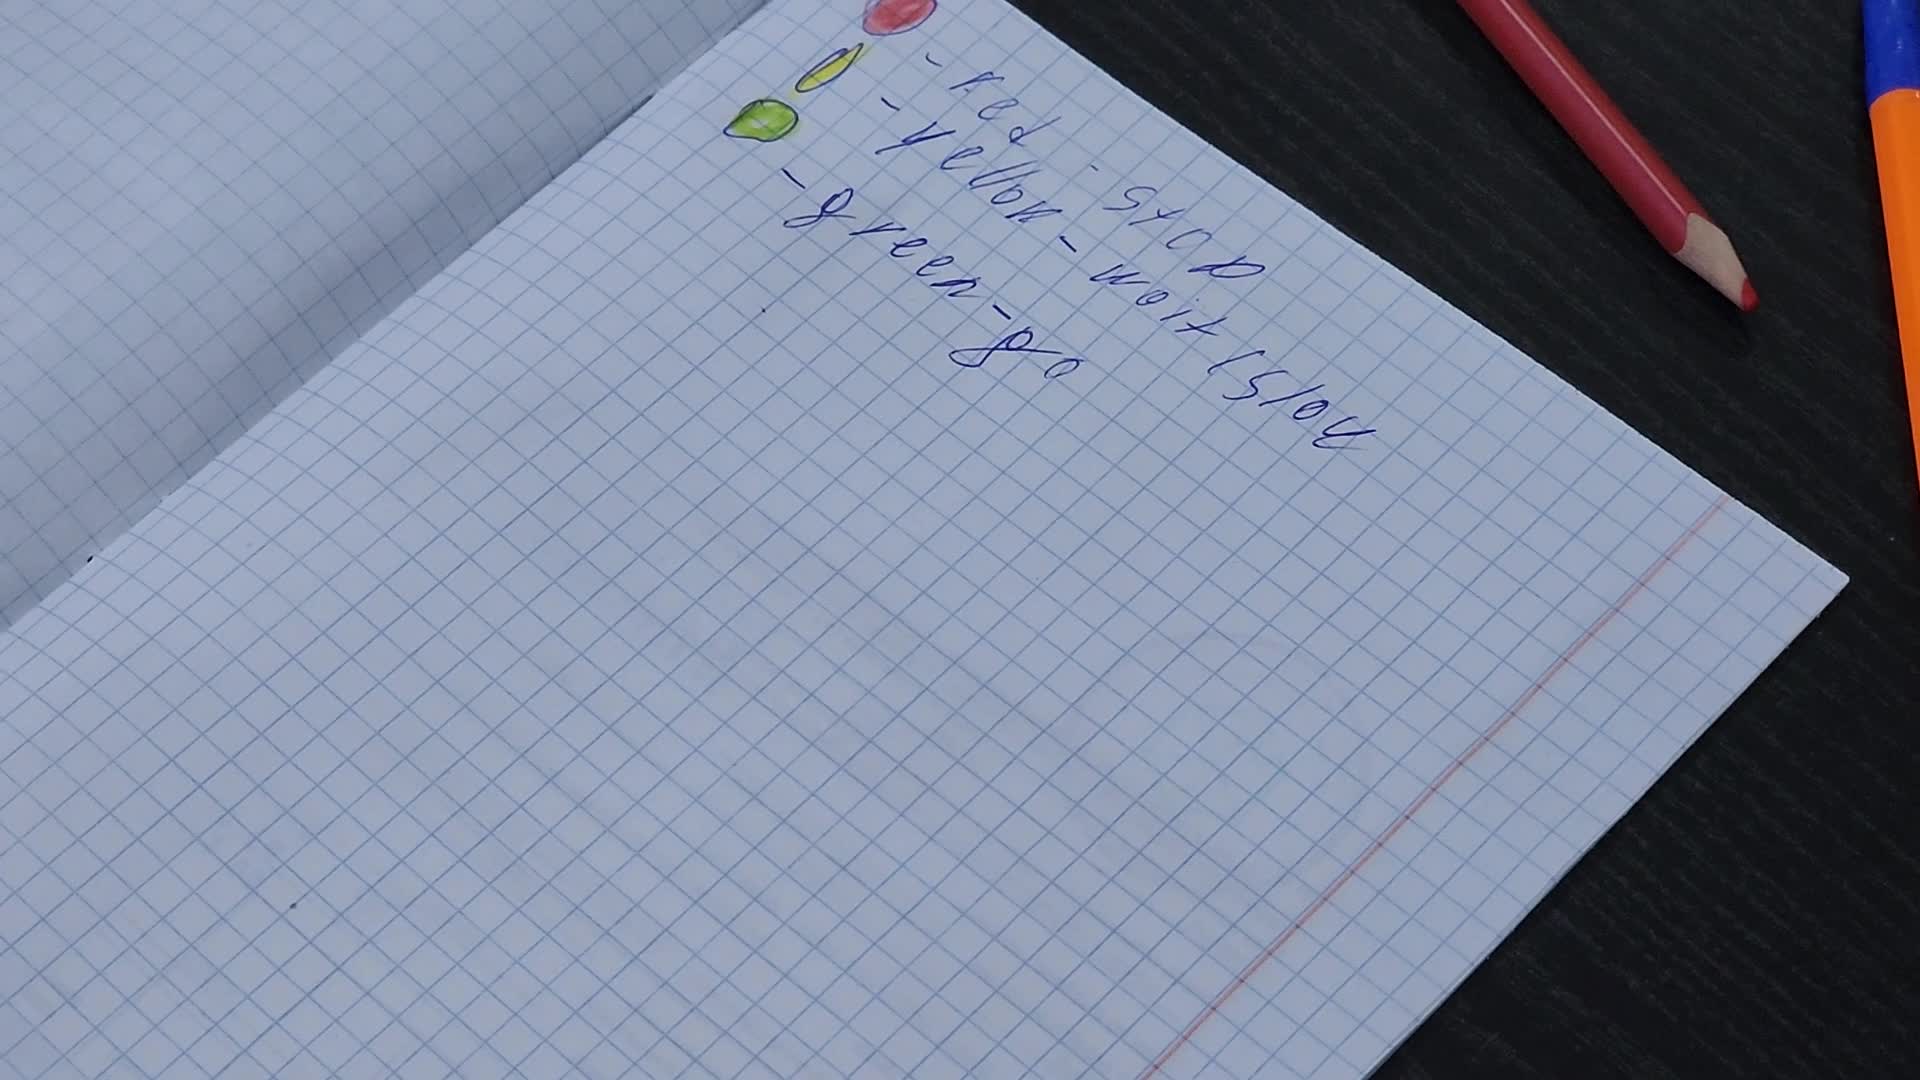 - red - stop
- yellow - wait (slow
- green - go